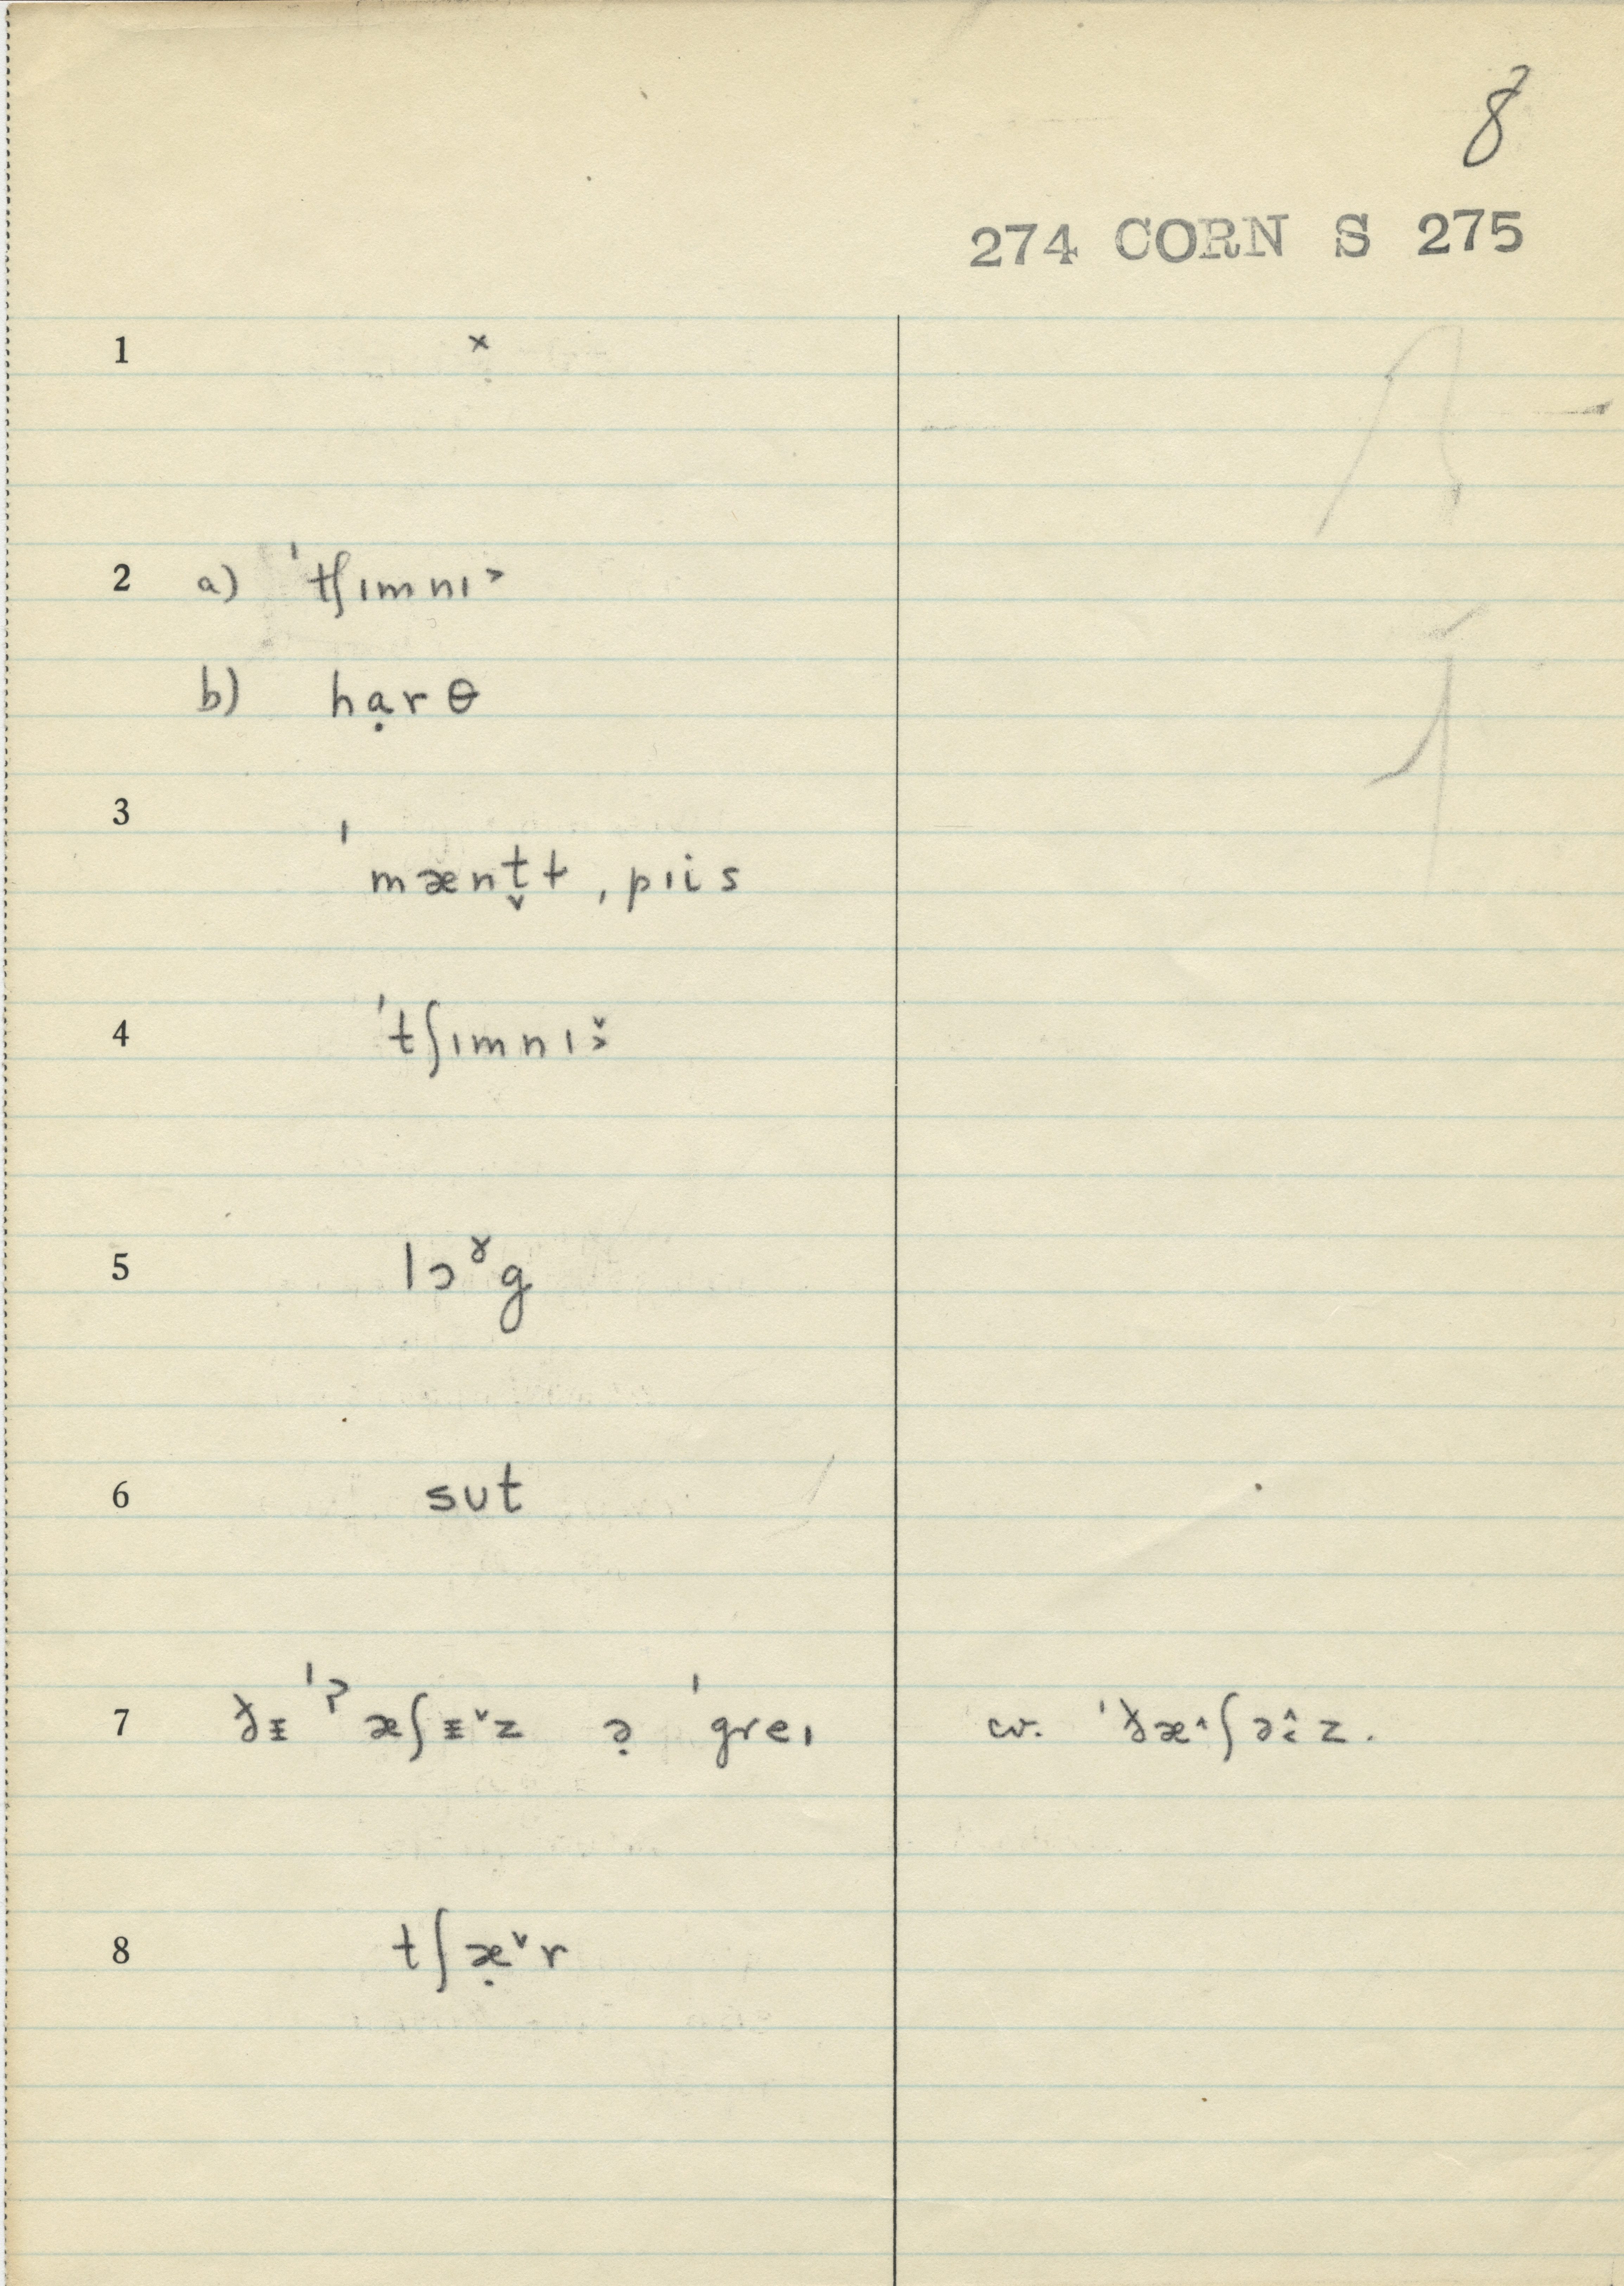 8
274 CORN S 275
1 ×
2 a) ˈtʃɪmnɪ˃
b) hạrθ
3 ˈmænt̬ɫˌpɪis
4 ˈtʃɪmnɪ˃̌
5 lɔˠg
6 sut
7 ðɪ ˈˀæʃɪˇz ə̣ ˈgreɪ cv. ˈðæ^ʃə^z.
8 tʃæ̣ˇr